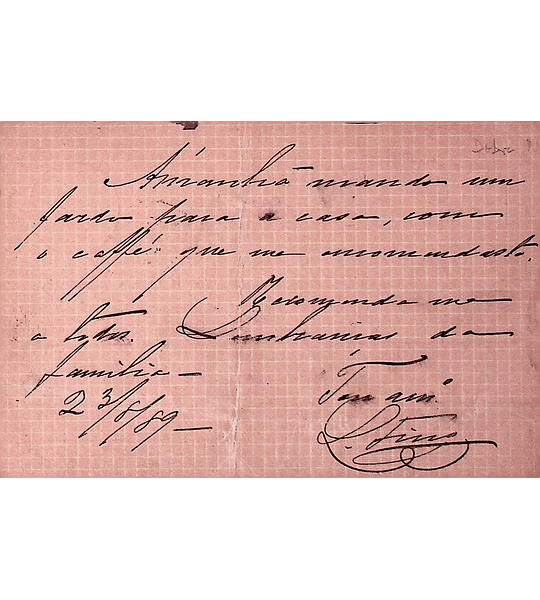 Amanhã mando um
fardo para a casa, com
o caffé que me encomendaste.
Recomenda me
a todos. Lembranças da
familia —
23/8/89 —
Teu am.º